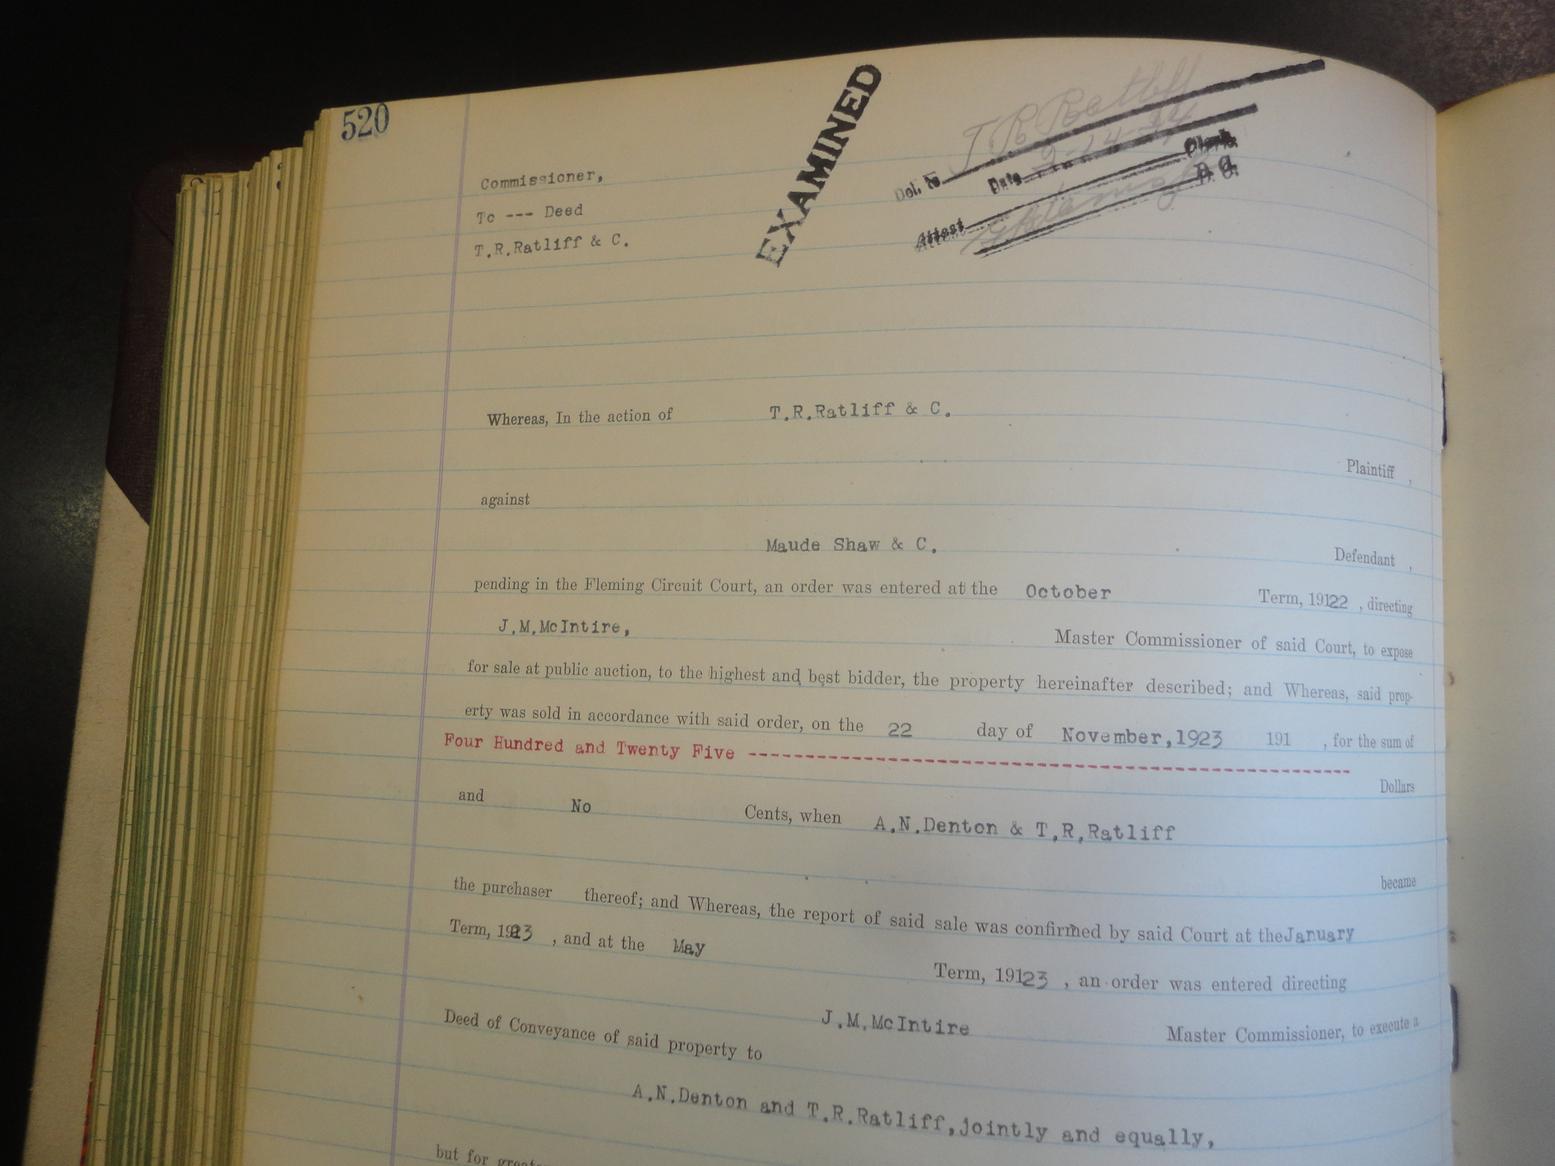 520
EXAMINED
T R Ratliff
Del. to
Date 2-14-24
Clerk
Attest
D. C.
Commissioner,
To --- Deed
T.R.Ratliff & C.
Whereas, In the action of T.R.Ratliff & C.
Plaintiff ,
against
Maude Shaw & C. Defendant ,
pending in the Fleming Circuit Court, an order was entered at the October Term, 19122 , directing
J.M.McIntire, Master Commissioner of said Court, to expose
for sale at public auction, to the highest and best bidder, the property hereinafter described; and Whereas, said prop-
erty was sold in accordance with said order, on the 22 day of November,1923 191 , for the sum of
Four Hundred and Twenty Five ------------------------------------------------------------
Dollars
and No Cents, when A.N.Denton & T.R,Ratliff
became
the purchaser thereof; and Whereas, the report of said sale was confirmed by said Court at theJanuary
Term, 1923 , and at the May Term, 19123 , an order was entered directing
J.M.McIntire Master Commissioner, to execute a
Deed of Conveyance of said property to
A.N.Denton and T.R.Ratliff,jointly and equally,
but for